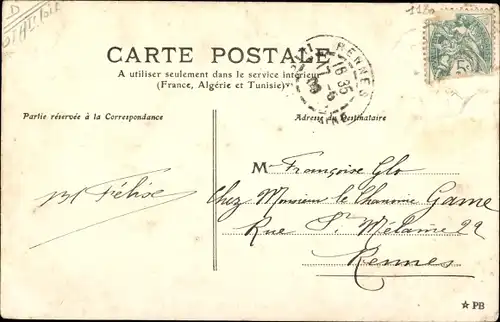 CARTE POSTALE
A utiliser seulement dans le service intérieur
(France, Algérie et Tunisie)
RENNES
16 35
17 -6
Partie réservée à la Correspondance
Adresse du Destinataire
M Françoise Glo
Chez Monsieur le Chanoine Game
Rue St Mélaine 22
Rennes
M Félise
☆ PB